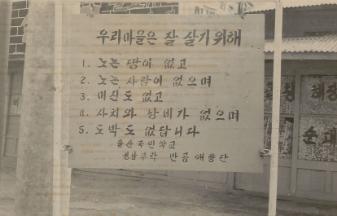 우리마을은 잘 살기 위해
1. 노는 땅이 없고
2. 노는 사람이 없으며
3. 미신도 없고
4. 사치와 허례가 없으며
5. 도박도 없답니다
국민학교
반공